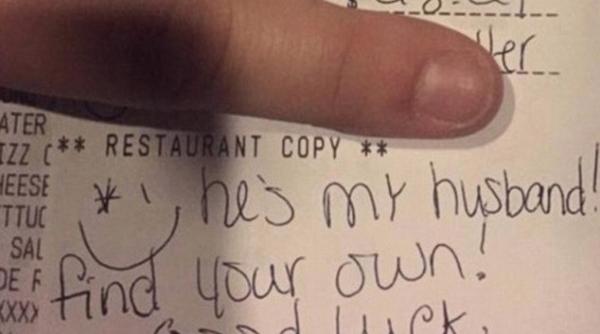 ter
ATER
IZZ C
** RESTAURANT COPY **
HEESE
TTUC
SAL
DE F
XXXX
he's my husband!
find your own!
Good luck.